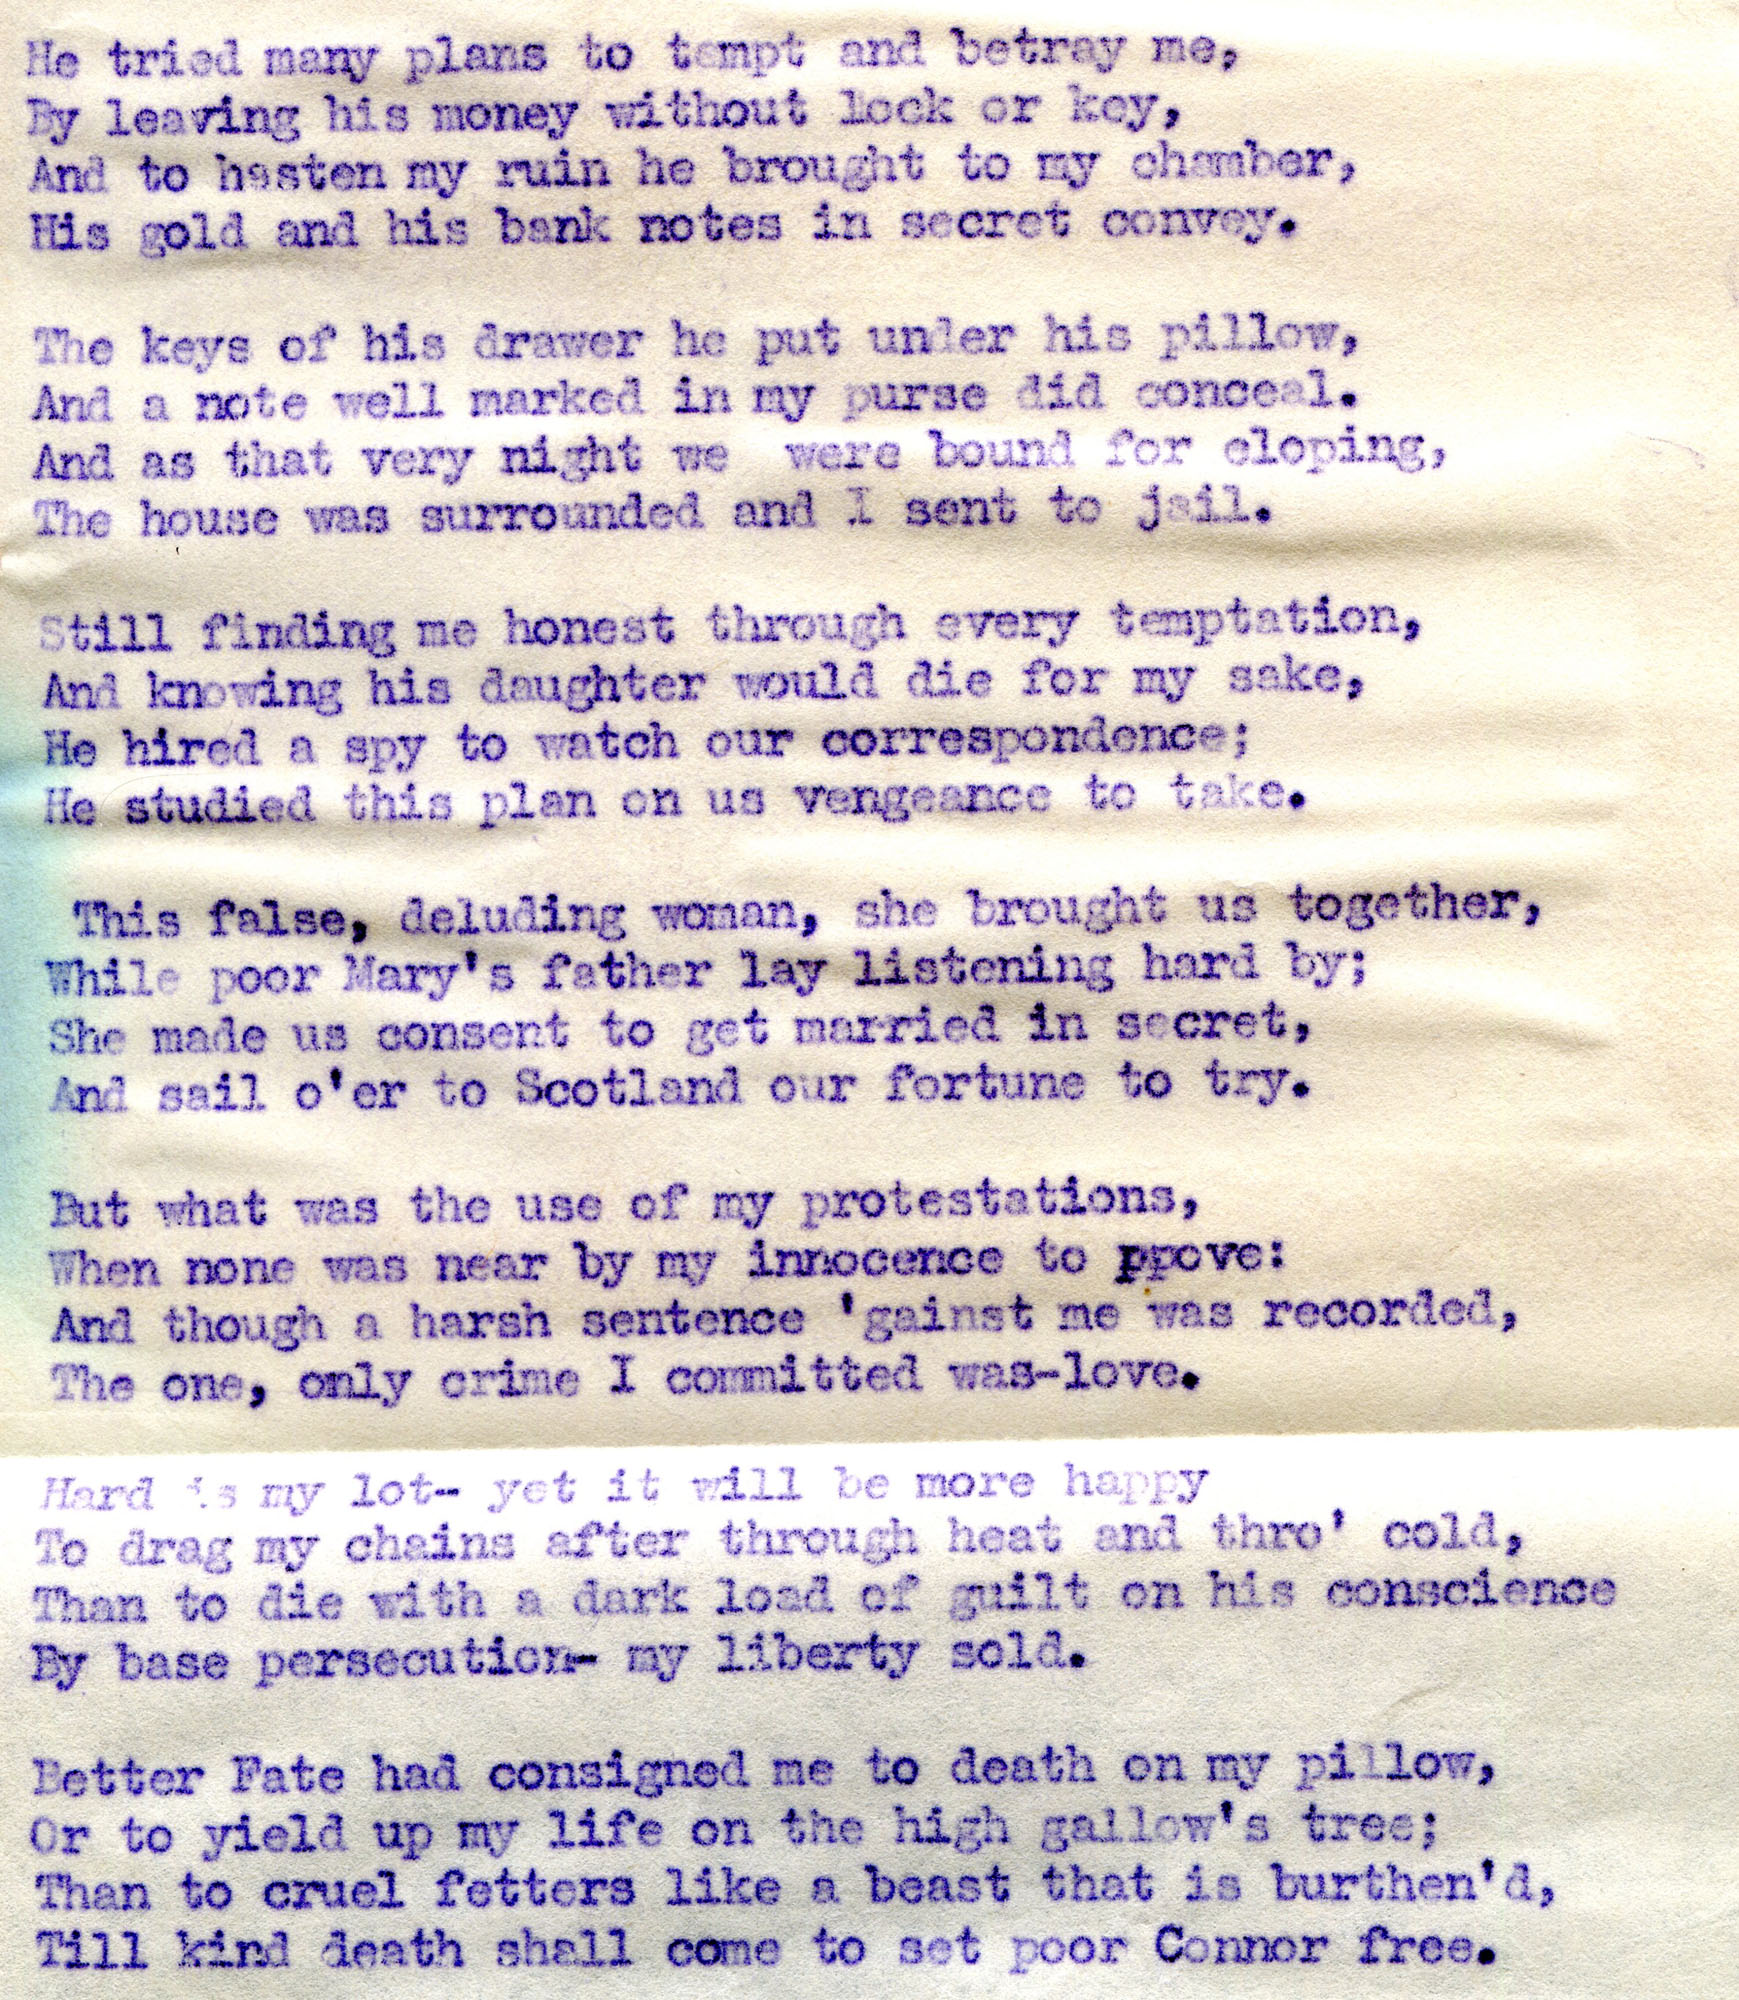 He tried many plans to tempt and betray me,
By leaving his money without lock or key,
And to hasten my ruin he brought to my chamber,
His gold and his bank notes in secret convey.

The keys of his drawer he put under his pillow,
And a note well marked in my purse did conceal.
And as that very night we were bound for eloping,
The house was surrounded and I sent to jail.

Still finding me honest through every temptation,
And knowing his daughter would die for my sake,
He hired a spy to watch our correspondence;
He studied this plan on us vengeance to take.

This false, deluding woman, she brought us together,
While poor Mary's father lay listening hard by;
She made us consent to get married in secret,
And sail o'er to Scotland our fortune to try.

But what was the use of my protestations,
When none was near by my innocence to ppove:
And though a harsh sentence 'gainst me was recorded,
The one, only crime I committed was-love.

Hard is my lot- yet it will be more happy
To drag my chains after through heat and thro' cold,
Than to die with a dark load of guilt on his conscience
By base persecution- my liberty sold.

Better Fate had consigned me to death on my pillow,
Or to yield up my life on the high gallow's tree;
Than to cruel fetters like a beast that is burthen'd,
Till kind death shall come to set poor Connor free.